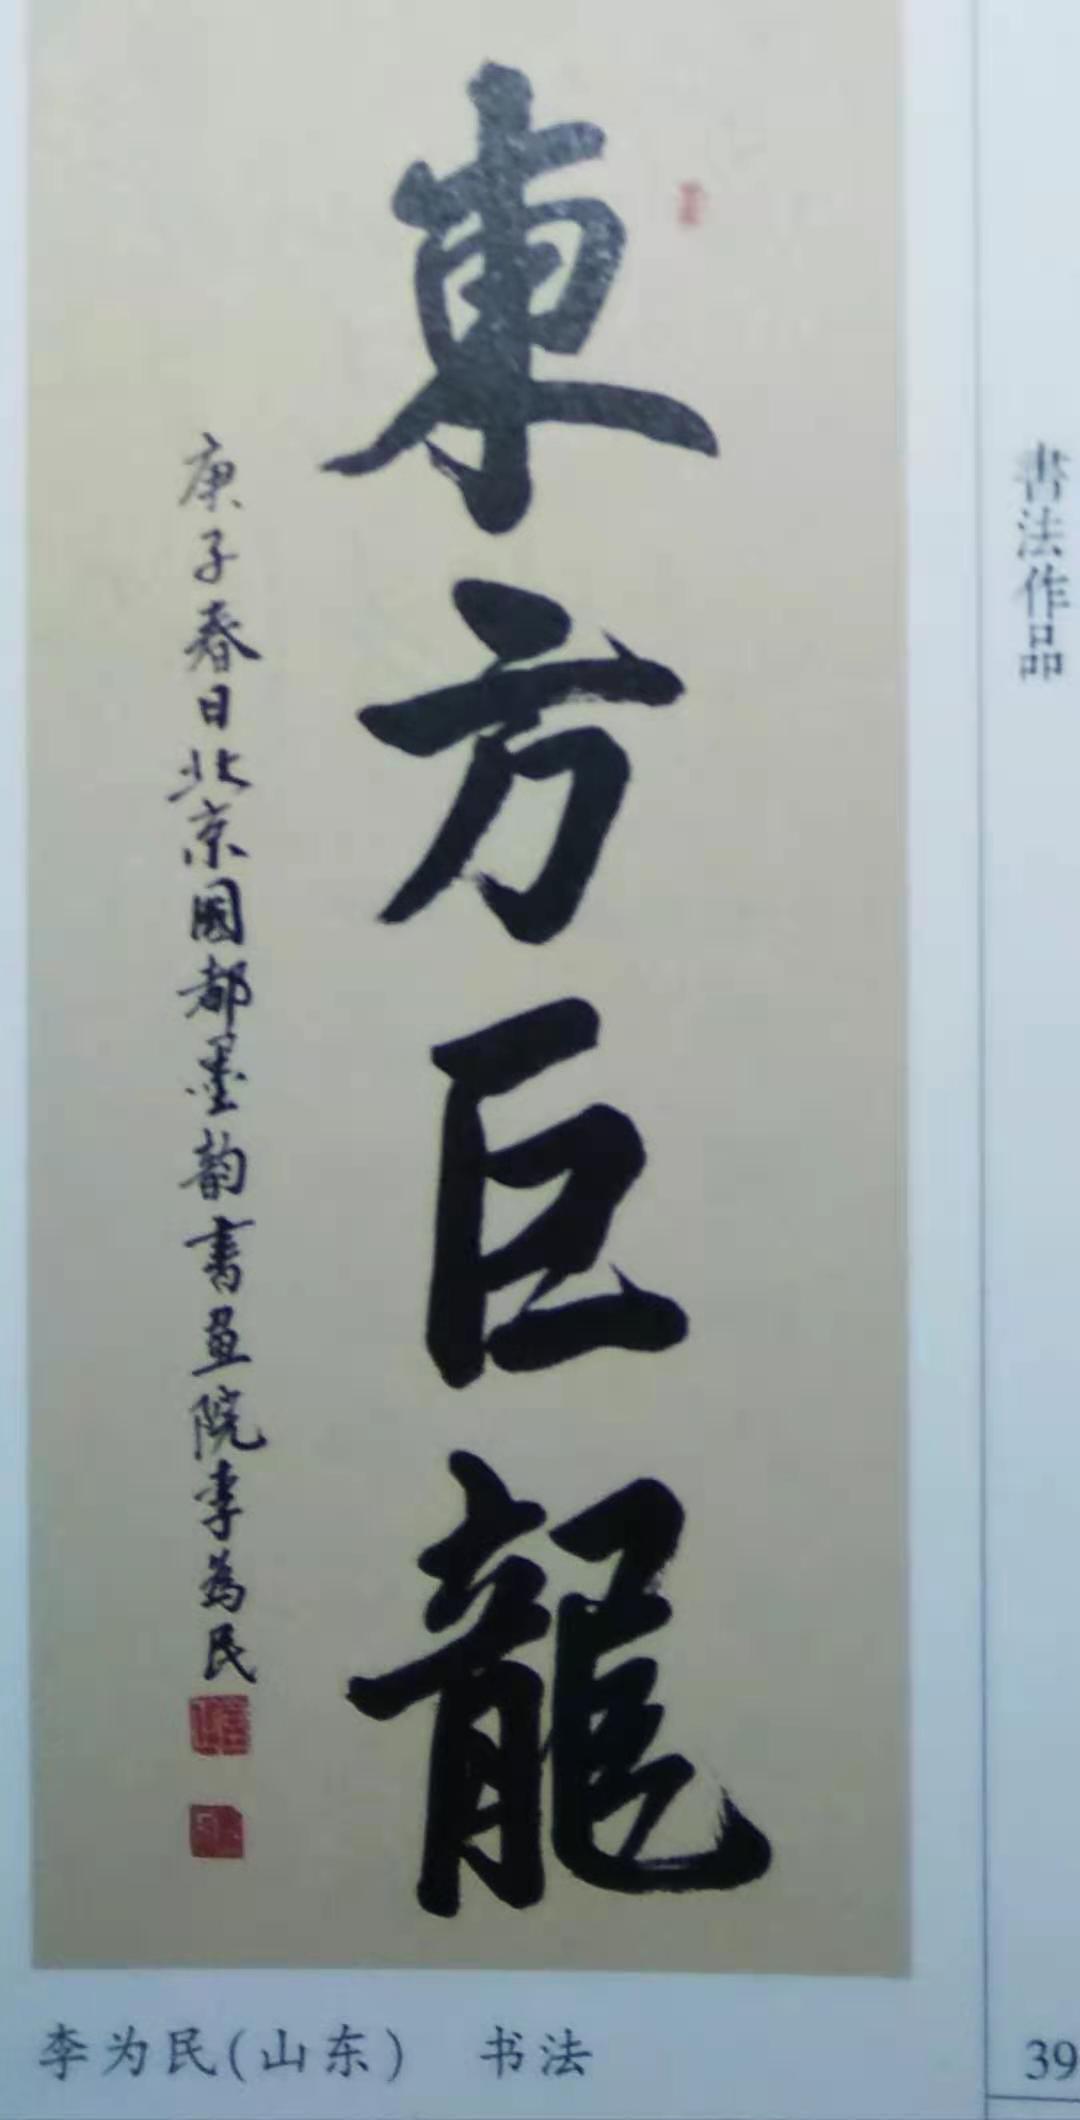 東方巨龍
庚子春日北京國都墨韵書画院李為民
書法作品
李为民(山东) 书法
39